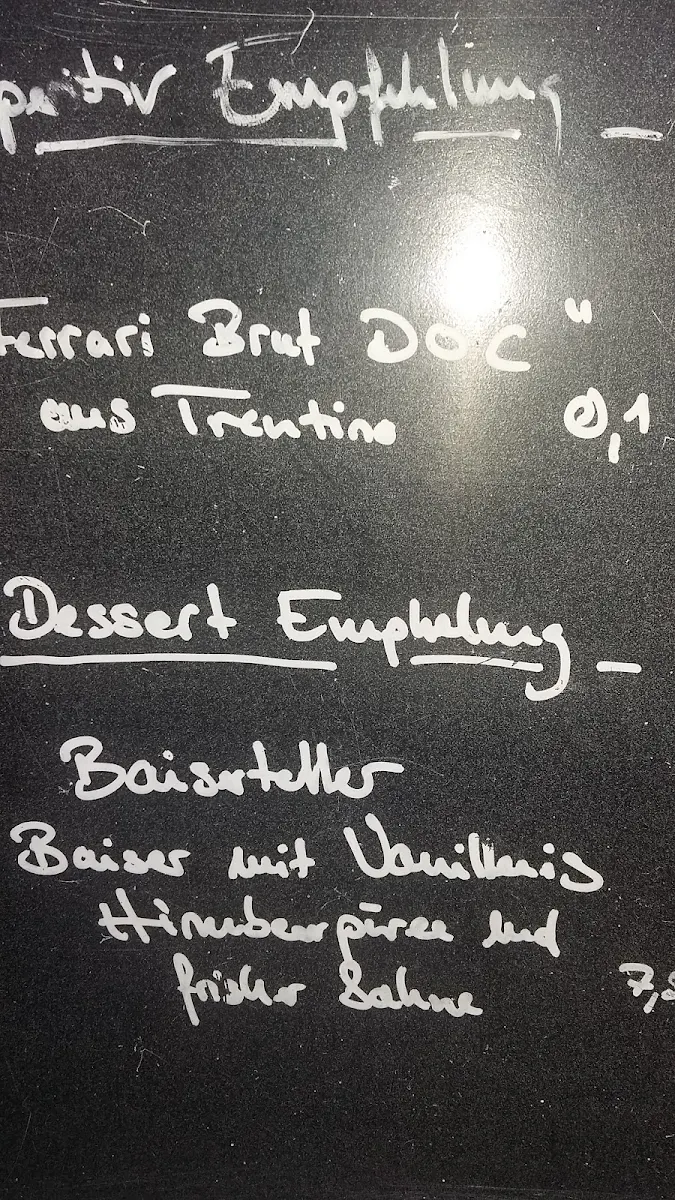 peritiv Empfehlung
Ferrari Brut DOC"
aus Trentino 0,1
Dessert Empfhelung
Baiserteller
Baiser mit Vanilleeis
Himbeerpüree und
frischer Sahne 7,